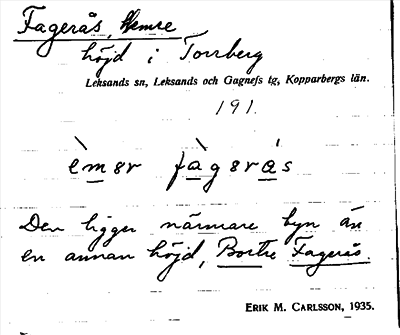 Fagerås, Hemre
höjd i Torrberg
Leksands sn, Leksands och Gagnefs tg, Kopparbergs län.
191.
èmər fàgərås
Den ligger närmare byn än
en annan höjd, Bortre Fagerås.
ERIK M. CARLSSON, 1935.